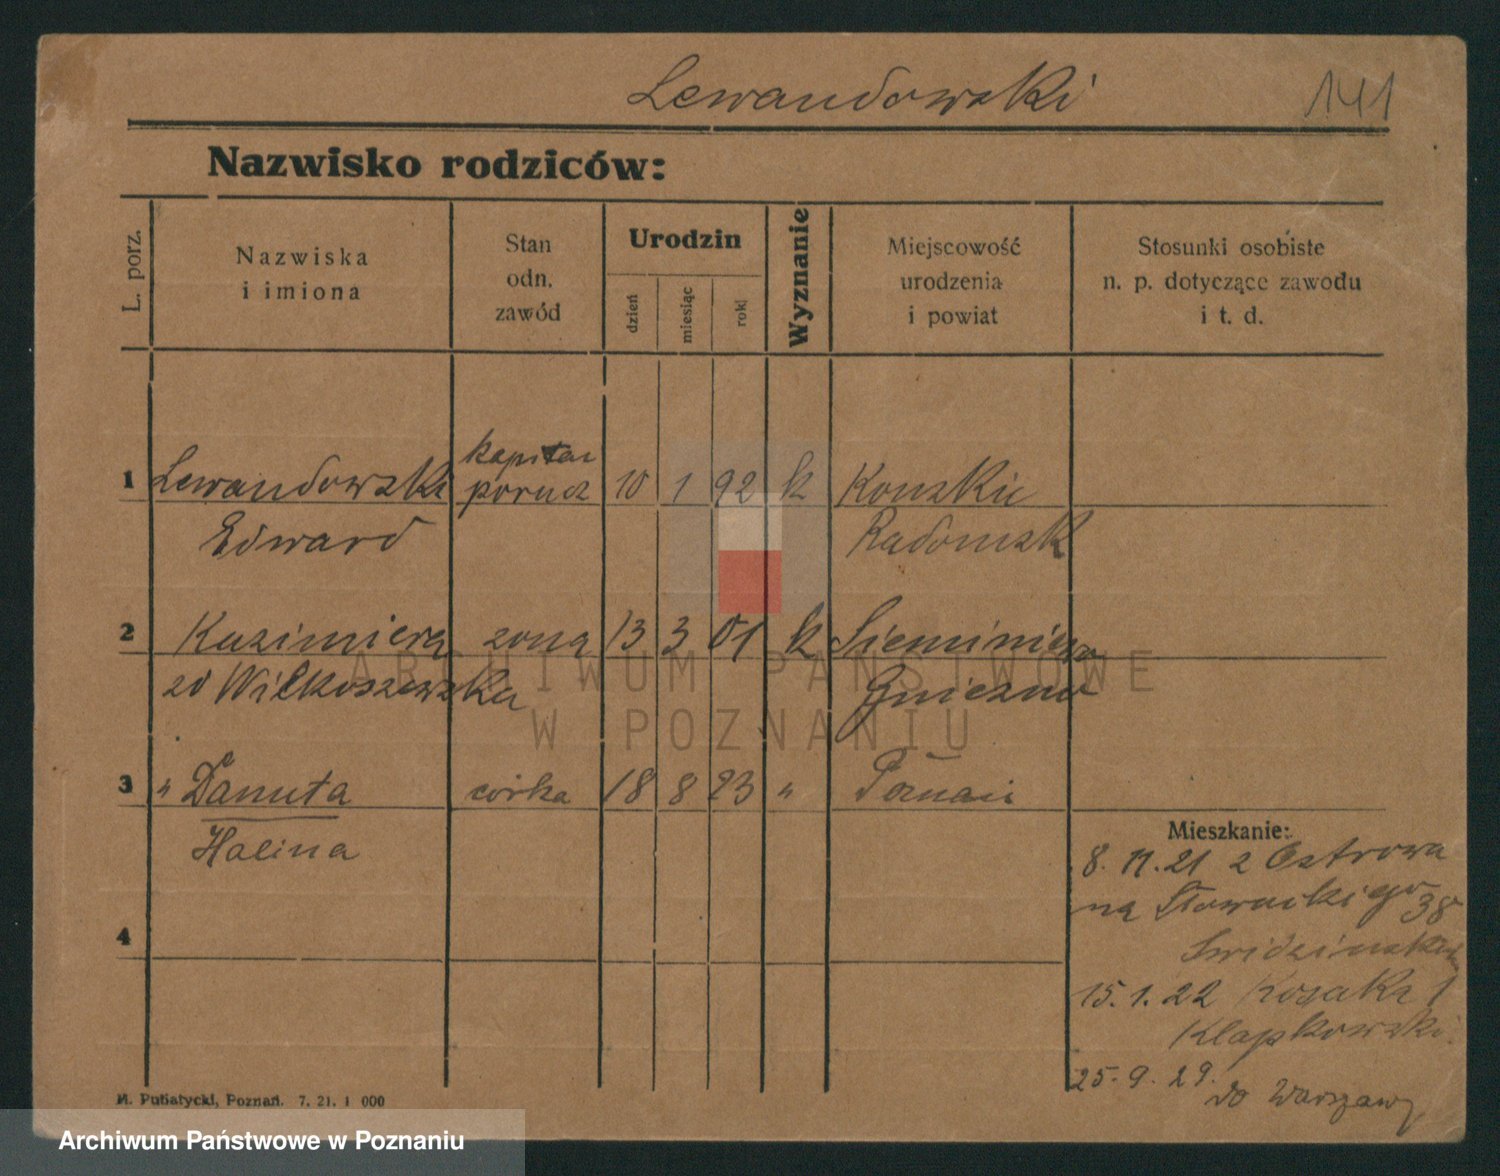 Lewandowski 141
Nazwisko rodziców:
L. porz.
Nazwiska
i imiona
Stan
odn.
zawód
Urodzin
dzień
miesiąc
rok
Wyznanie
Miejscowość
urodzenia
i powiat
Stosunki osobiste
n. p. dotyczące zawodu
i t. d.
kapitan
1 Lewandowski porucz 10 1 92 k Konskie
Edward Radomsk
2 Kazimiera zona 13 3 01 k
zd Wilkoszewska Gniezno
3 " Danuta córka 18 8 23 " Poznań
Halina
Mieszkanie:
8. 11. 21 z Ostrowa
na Słowackiego 38
15. 1. 22 Kozaka 1
Klapkowski
4
25. 9. 29.
do Warszawy
M. Putiatycki, Poznań. 7. 21. 1 000
ARCHIWUM PAŃSTWOWE
W POZNANIU
Archiwum Państwowe w Poznaniu